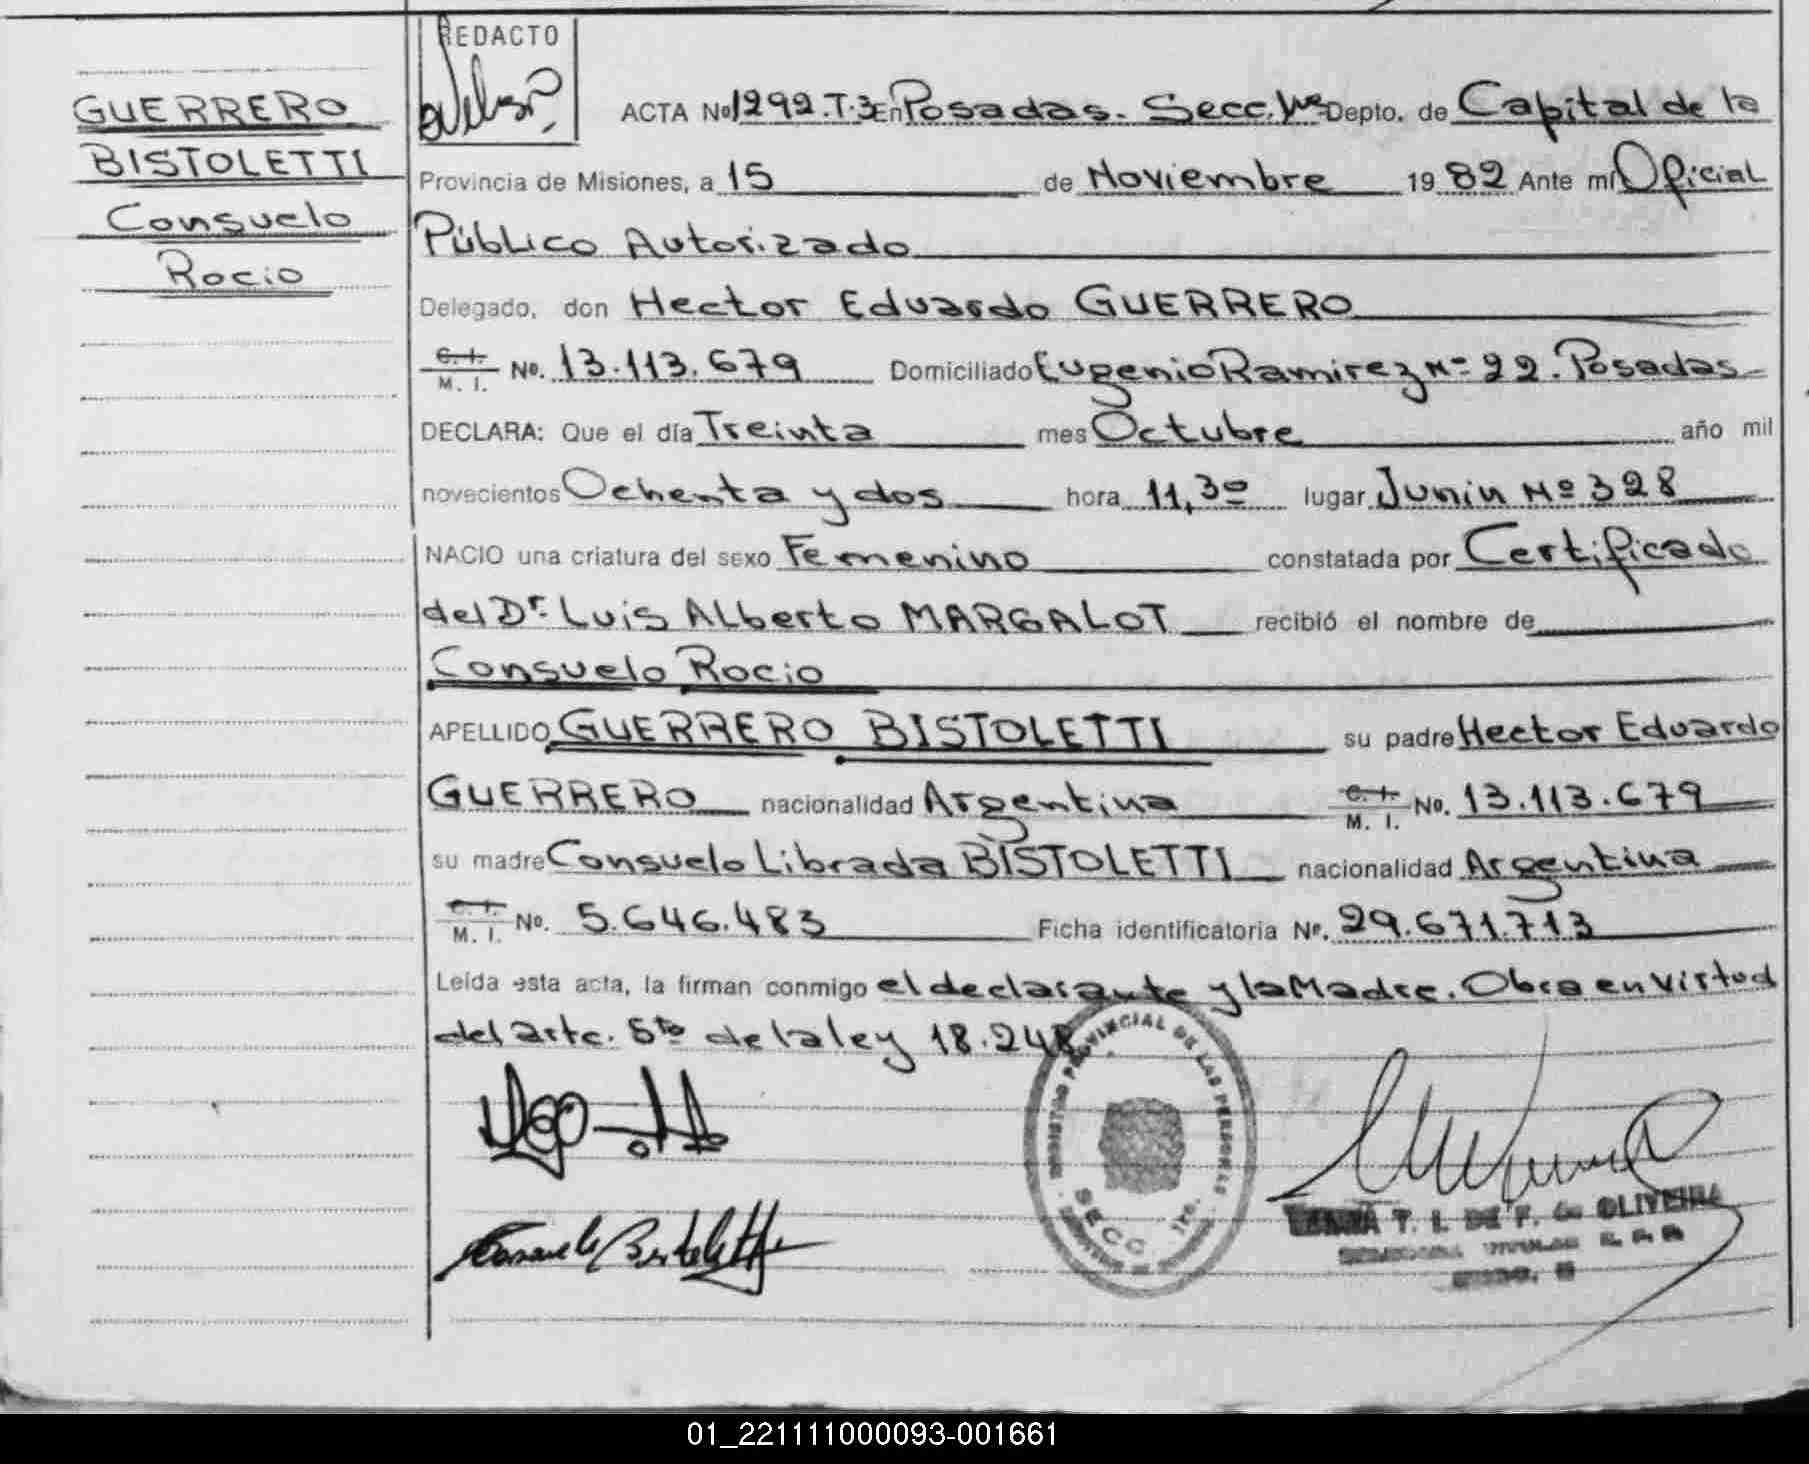 GUERRERO
BISTOLETTI
Consuelo
Rocio
REDACTO
ACTA Nº 1292.T.3 En Posadas. Secc. 1ra Depto. de Capital de la
Provincia de Misiones, a 15 de Noviembre 19 82 Ante mí Oficial
Público Autorizado
Delegado, don Hector Eduardo GUERRERO
C. I. / M. I. Nº. 13.113.679 Domiciliado Eugenio Ramirez Nº 22. Posadas
DECLARA: Que el día Treinta mes Octubre año mil
novecientos Ochenta y dos hora 11,30 lugar Junin Nº 328
NACIO una criatura del sexo Femenino constatada por Certificado
del Dr. Luis Alberto MARGALOT recibió el nombre de
Consuelo Rocio
APELLIDO GUERRERO BISTOLETTI su padre Hector Eduardo
GUERRERO nacionalidad Argentina C. I. / M. I. Nº. 13.113.679
su madre Consuelo Librada BISTOLETTI nacionalidad Argentina
C. I. / M. I. Nº. 5.646.483 Ficha identificatoria Nº. 29.671.713
Leída esta acta, la firman conmigo el declarante y la Madre. Obra en virtud
del artc. 5to de la ley 18.248
REGISTRO PROVINCIAL DE LAS PERSONAS
SECC. 1ra.
Consuelo Bistoletti
T. I. DE F. de OLIVEIRA
01_221111000093-001661